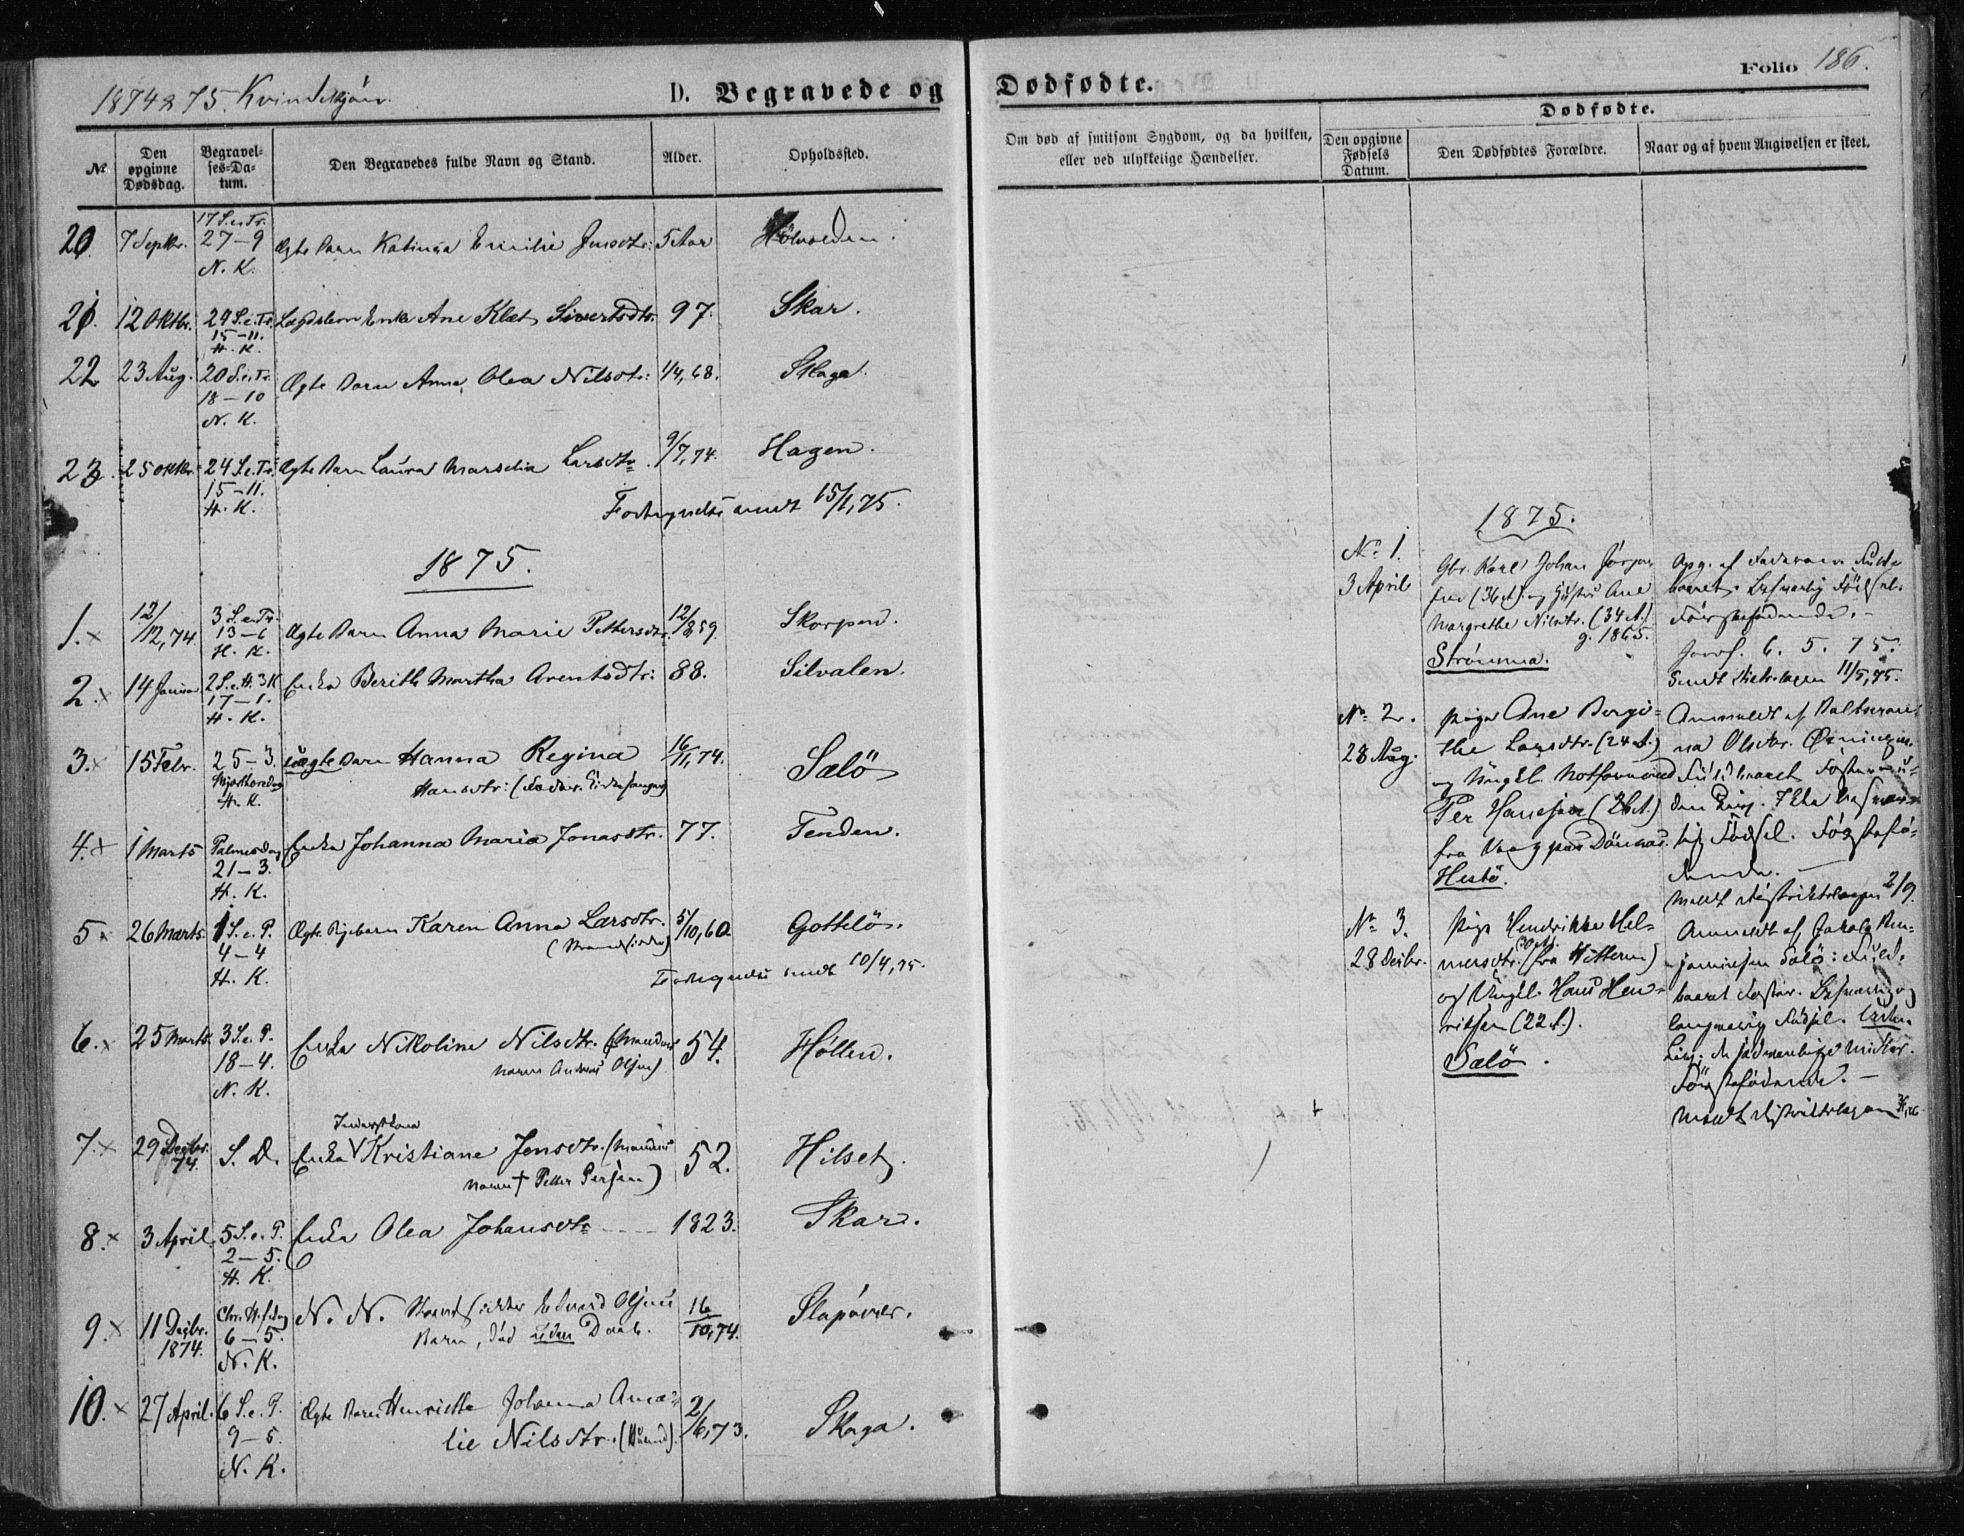 1874 & 75. Kvindekjön.
D. Begravede og
Dødfødte.
Folio 186.
No.
Den opgivne Dødsdag.
Begravelses-Datum.
Den Begravedes fulde Navn og Stand.
Alder.
Opholdssted.
Om død af smitsom Sygdom, og da hvilken, eller ved ulykkelige Hændelser.
Dødfødte.
Den opgivne Fødsels Datum.
Den Dødfødtes Forældre.
Naar og af hvem Angivelsen er skeet.
20. 7 Septbr. 17 S.e.Tr. 27-9 N. K. Ægte Barn Katinca Emilie Jensdtr: 5 Aar
21. 12 Oktbr. 24 S.e.Tr. 15-11. H. K. Lægdslem Enke Ane Klæt Sivertsdtr. 97. Skar.
22 23 Aug. 20 S.e.Tr. 18-10 N. K. Ægte Barn Anna Olea Nilsdtr: 1/4,68. Skaga.
23. 25 Oktbr. 24 S.e.Tr. 15-11. H. K. Ægte Barn Laura Marselia Larsdtr. 9/7,74. Hagen.
Fortegnelse sendt 15/1,75.
1875.
1. x 12/12,74. 13-6 H. K. Ægte Barn Anna Marie Pettersdtr. 12/8,59. Skorpen.
2. x 14 Januar 2 S.e.H.3K 17-1. H. K. Enke Berith Martha Arentsdtr: 88. Silvalen.
3. x 15 Febr. 25-3. Skjærthorsdag H. K. uægte Barn Hanna Regina 16/11,74. Sælö
Hansdtr:
4. x 1 Marts Palmesdag 21-3. H. K. Enke Johanna Maria Jonasdtr. 77. Tenden.
5. x 26 Marts. 1 S.e.P. 4-4 H. K. Ægte Pigebarn Karen Anna Larsdtr. 5/10,60 Gottelö.
(Strandsidder)
Fortegnelse sendt 10/4,75.
6. x 25 Marts 3 S.e.P. 18-4. N. K. Enke Nikoline Nilsdtr. (Mandens 54. Høllen.
navn Andreas Olsen)
7. x 29 Decbr. 74. S. D. Enke Inderstkone Kristiane Jensdtr. (Mandens 52. Hilset.
navn † Petter Persen)
8. x 3 April. 5 S.e.P. 2-5. H. K. Enke Olea Johansdtr 1823. Skar.
9. x 11 Decbr. 1874. Chr. H.f.dag 6-5. N. K. N. N. Strandsidder Edvard Olsens 16/10,74. Slapöver.
Barn, död uden Daab.
10. x 27 April. 6 S.e.P. 9-5. N. K. Ægte Barn Henriette Johanna Ama- 2/6,73. Skaga.
lie Nilsdtr. (Husmd).
1875.
No 1.
3 April
Gbr. Karl Johan Jörgen-
sen (36 A.) og Hustru Ane
Margrethe Nilsdtr. (34 A.)
g. 1865.
Strömma.
Opg. af Faderen. Fuld-
baaret. Besværlig Födsel.
Förstefödende.
Jonsf. 6. 5. 75.
Sendt Distr.lægen 11/5,75.
No 2.
28 Aug.
Pige Ane Bergi-
the Larsdtr. (24 A.)
og Ungk.
Per Hansen (26 A.)
fra
Hestö.
Anmeldt af
na Olsdtr.
Födsel. Förstefö-
dende.
Meldt Distriktslægen 2/9.
No 3.
28 Decbr.
Pige Hendrikke Hel-
mersdtr. (30 A.) (fra Hitteren)
og Ungk. Hans Hen-
riksen (22 A.).
Sælö.
Anmeldt af Jakob Ben-
jaminsen Sælö: Fuld-
baaret Foster. Besværlig og
langvarig Födsel.
Förstefödende.
Meldt Distriktslægen